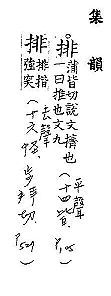 集韻
排 蒲皆切說文擠也
一曰推也文九
(平聲
十四皆)
P.105
排 排揩
強突
(去聲
十六怪,步拜切.
P.529